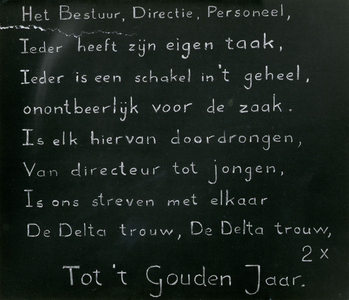 Het Bestuur, Directie, Personeel,
Ieder heeft zijn eigen taak,
Ieder is een schakel in't geheel,
onontbeerlijk voor de zaak.
Is elk hiervan doordrongen,
Van directeur tot jongen,
Is ons streven met elkaar
De Delta trouw, De Delta trouw,
2 x
Tot 't Gouden Jaar.